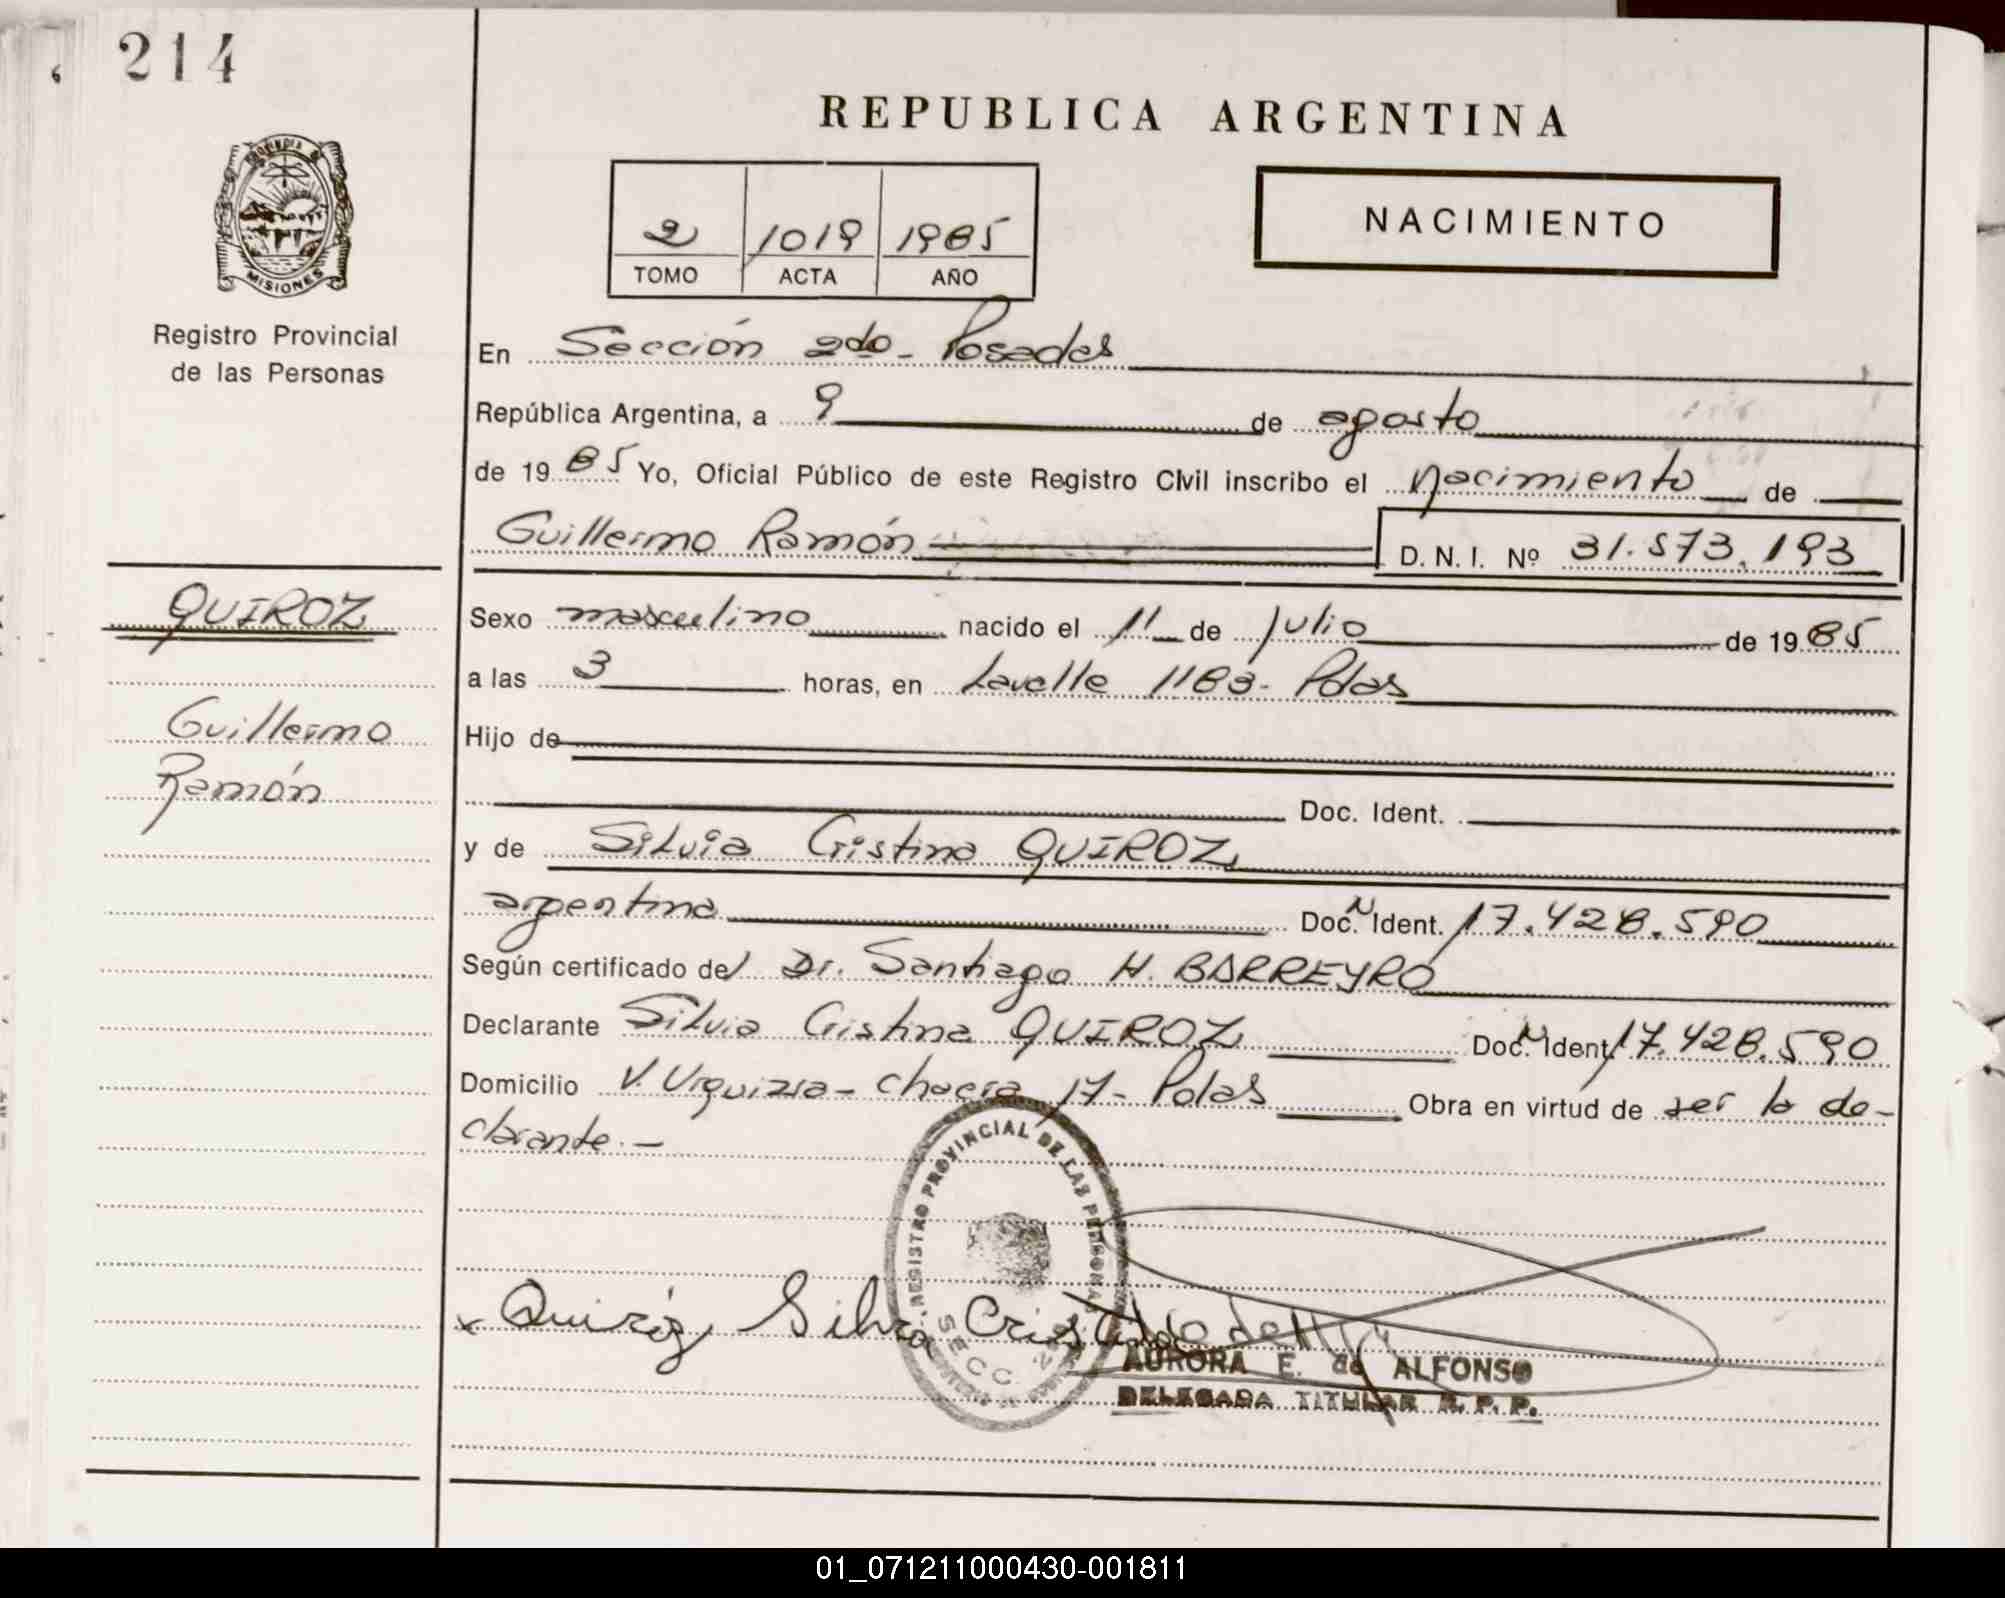 214
REPUBLICA ARGENTINA
PROVINCIA DE
MISIONES
Registro Provincial
de las Personas
2 1019 1985
TOMO ACTA AÑO
NACIMIENTO
En Sección 2do - Posadas
República Argentina, a 9 de agosto
de 1985 Yo, Oficial Público de este Registro Civil inscribo el nacimiento de
Guillermo Ramón D. N. I. Nº 31.573.193
QUIROZ
Guillermo
Ramón
Sexo masculino nacido el 11 de julio de 1985
a las 3 horas, en Lavalle 1183 - Pdas
Hijo de
Doc. Ident.
y de Silvia Cristina QUIROZ
argentina Doc. N Ident. 17.428.590
Según certificado del Dr. Santiago H. BARREYRO
Declarante Silvia Cristina QUIROZ Doc. N Ident. 17.428.590
Domicilio V. Urquiza - Chacra 17 - Pdas Obra en virtud de ser la de-
clarante. -
REGISTRO PROVINCIAL DE LAS PERSONAS
SECC. 2
x Quiróz, Silvia
AURORA E. de ALFONSO
DELEGADA TITULAR R. P. P.
01_071211000430-001811